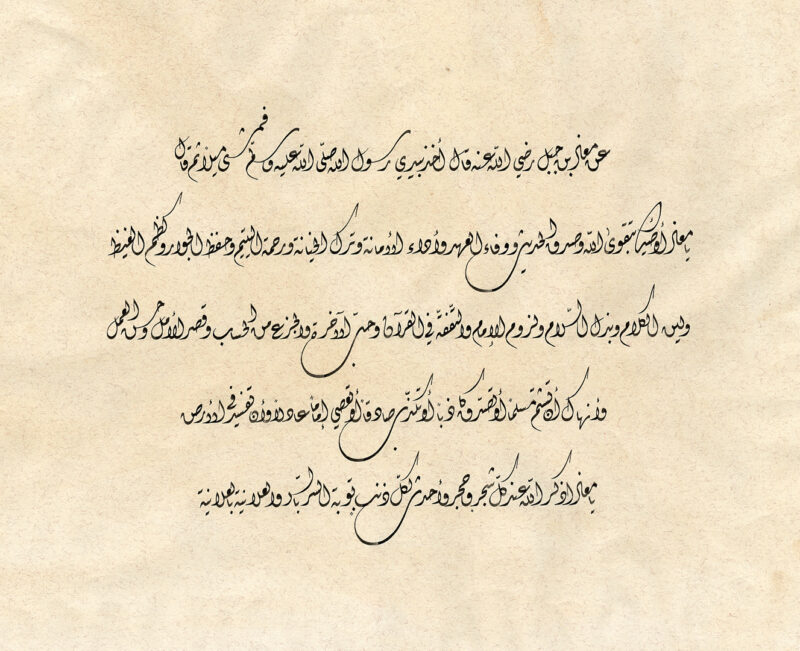 عن معاذ بن جبل رضي الله عنه قال أخذ بيدي رسول الله صلى الله عليه وسلم فمشى ميلا ثم قال
يا معاذ أوصيك بتقوى الله وصدق الحديث ووفاء العهد وأداء الأمانة وترك الخيانة ورحمة اليتيم وحفظ الجوار وكظم الغيظ
ولين الكلام وبذل السلام ولزوم الإمام والتفقه في القرآن وحب الآخرة والجزع من الحساب وقصر الأمل وحسن العمل
وأنهاك أن تشتم مسلما أو تصدق كاذبا أو تكذب صادقا أو تعصي إماما عادلا وأن تفسد في الأرض
يا معاذ اذكر الله عند كل شجر وحجر وأحدث لكل ذنب توبة السر بالسر والعلانية بالعلانية